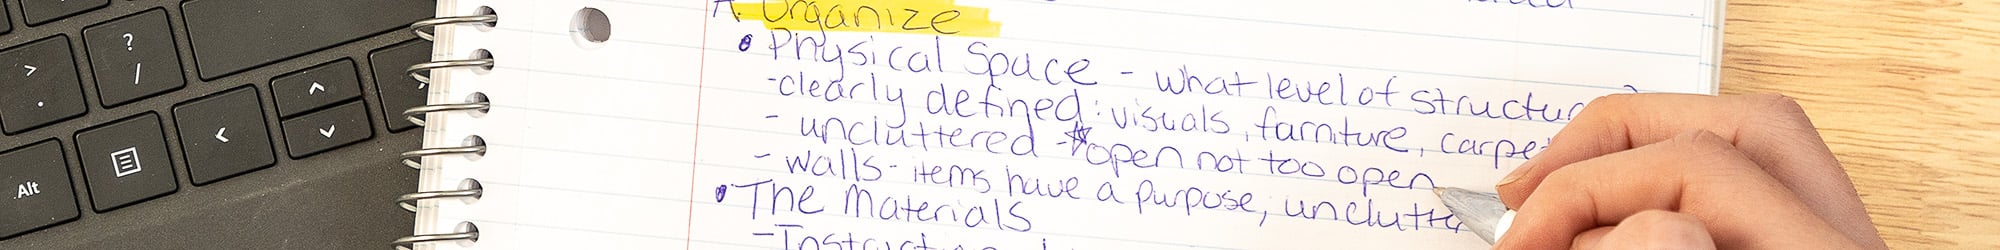 A. Organize
• Physical Space - what level of structur ?
- clearly defined: visuals, farniture, carpe
- uncluttered - ☆open not too open
- walls - items have a purpose, unclutte
• The Materials
? /
> .
Alt